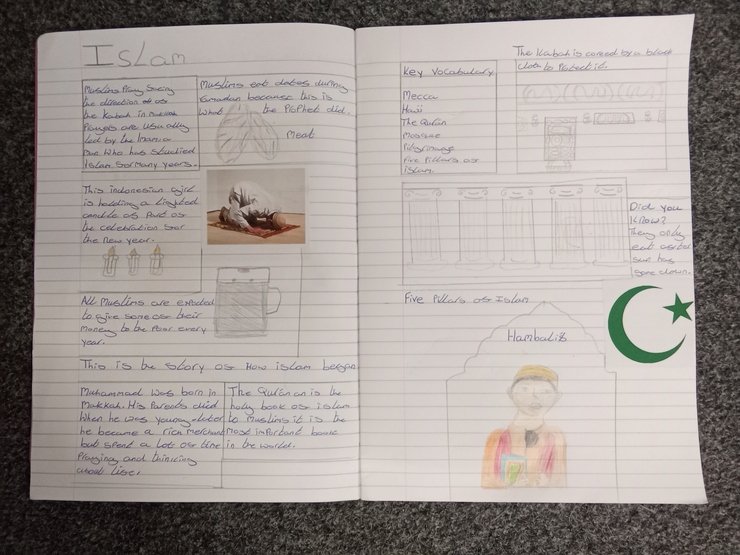 Islam
Muslims Pray Sacing
the direction os os
the Kabah in makkah
Prayers are usually
led by the Imam a
man who has studied
Islam Sor many years.
Muslims eat dates during
Ramadan because this is
what the Prophet did.
Meat
This indonesian girl
is holding a lighted
candle as Part os
the celebration sor
the new year.
All Muslims are expected
to give some os their
money to the Poor every
year.
This is the story os How islam began
Muhammad was born in
Makkah. His Parents died
when he was young. later
he became a rich merchant
but spent a lot os time
Praying and thinking
about lise.
The Qur'an an is the
holy book os islam
to Muslims it is the
most important book
in the world.
Key Vocabulary
Mecca
Hajj
The Qur'an
mosque
Pilgrimage
Five Pillars os
islam.
The Kabah is covered by a black
cloth to Protect it.
Did you
Know?
They only
eat aster
sun has
gone down.
Five Pillars os Islam